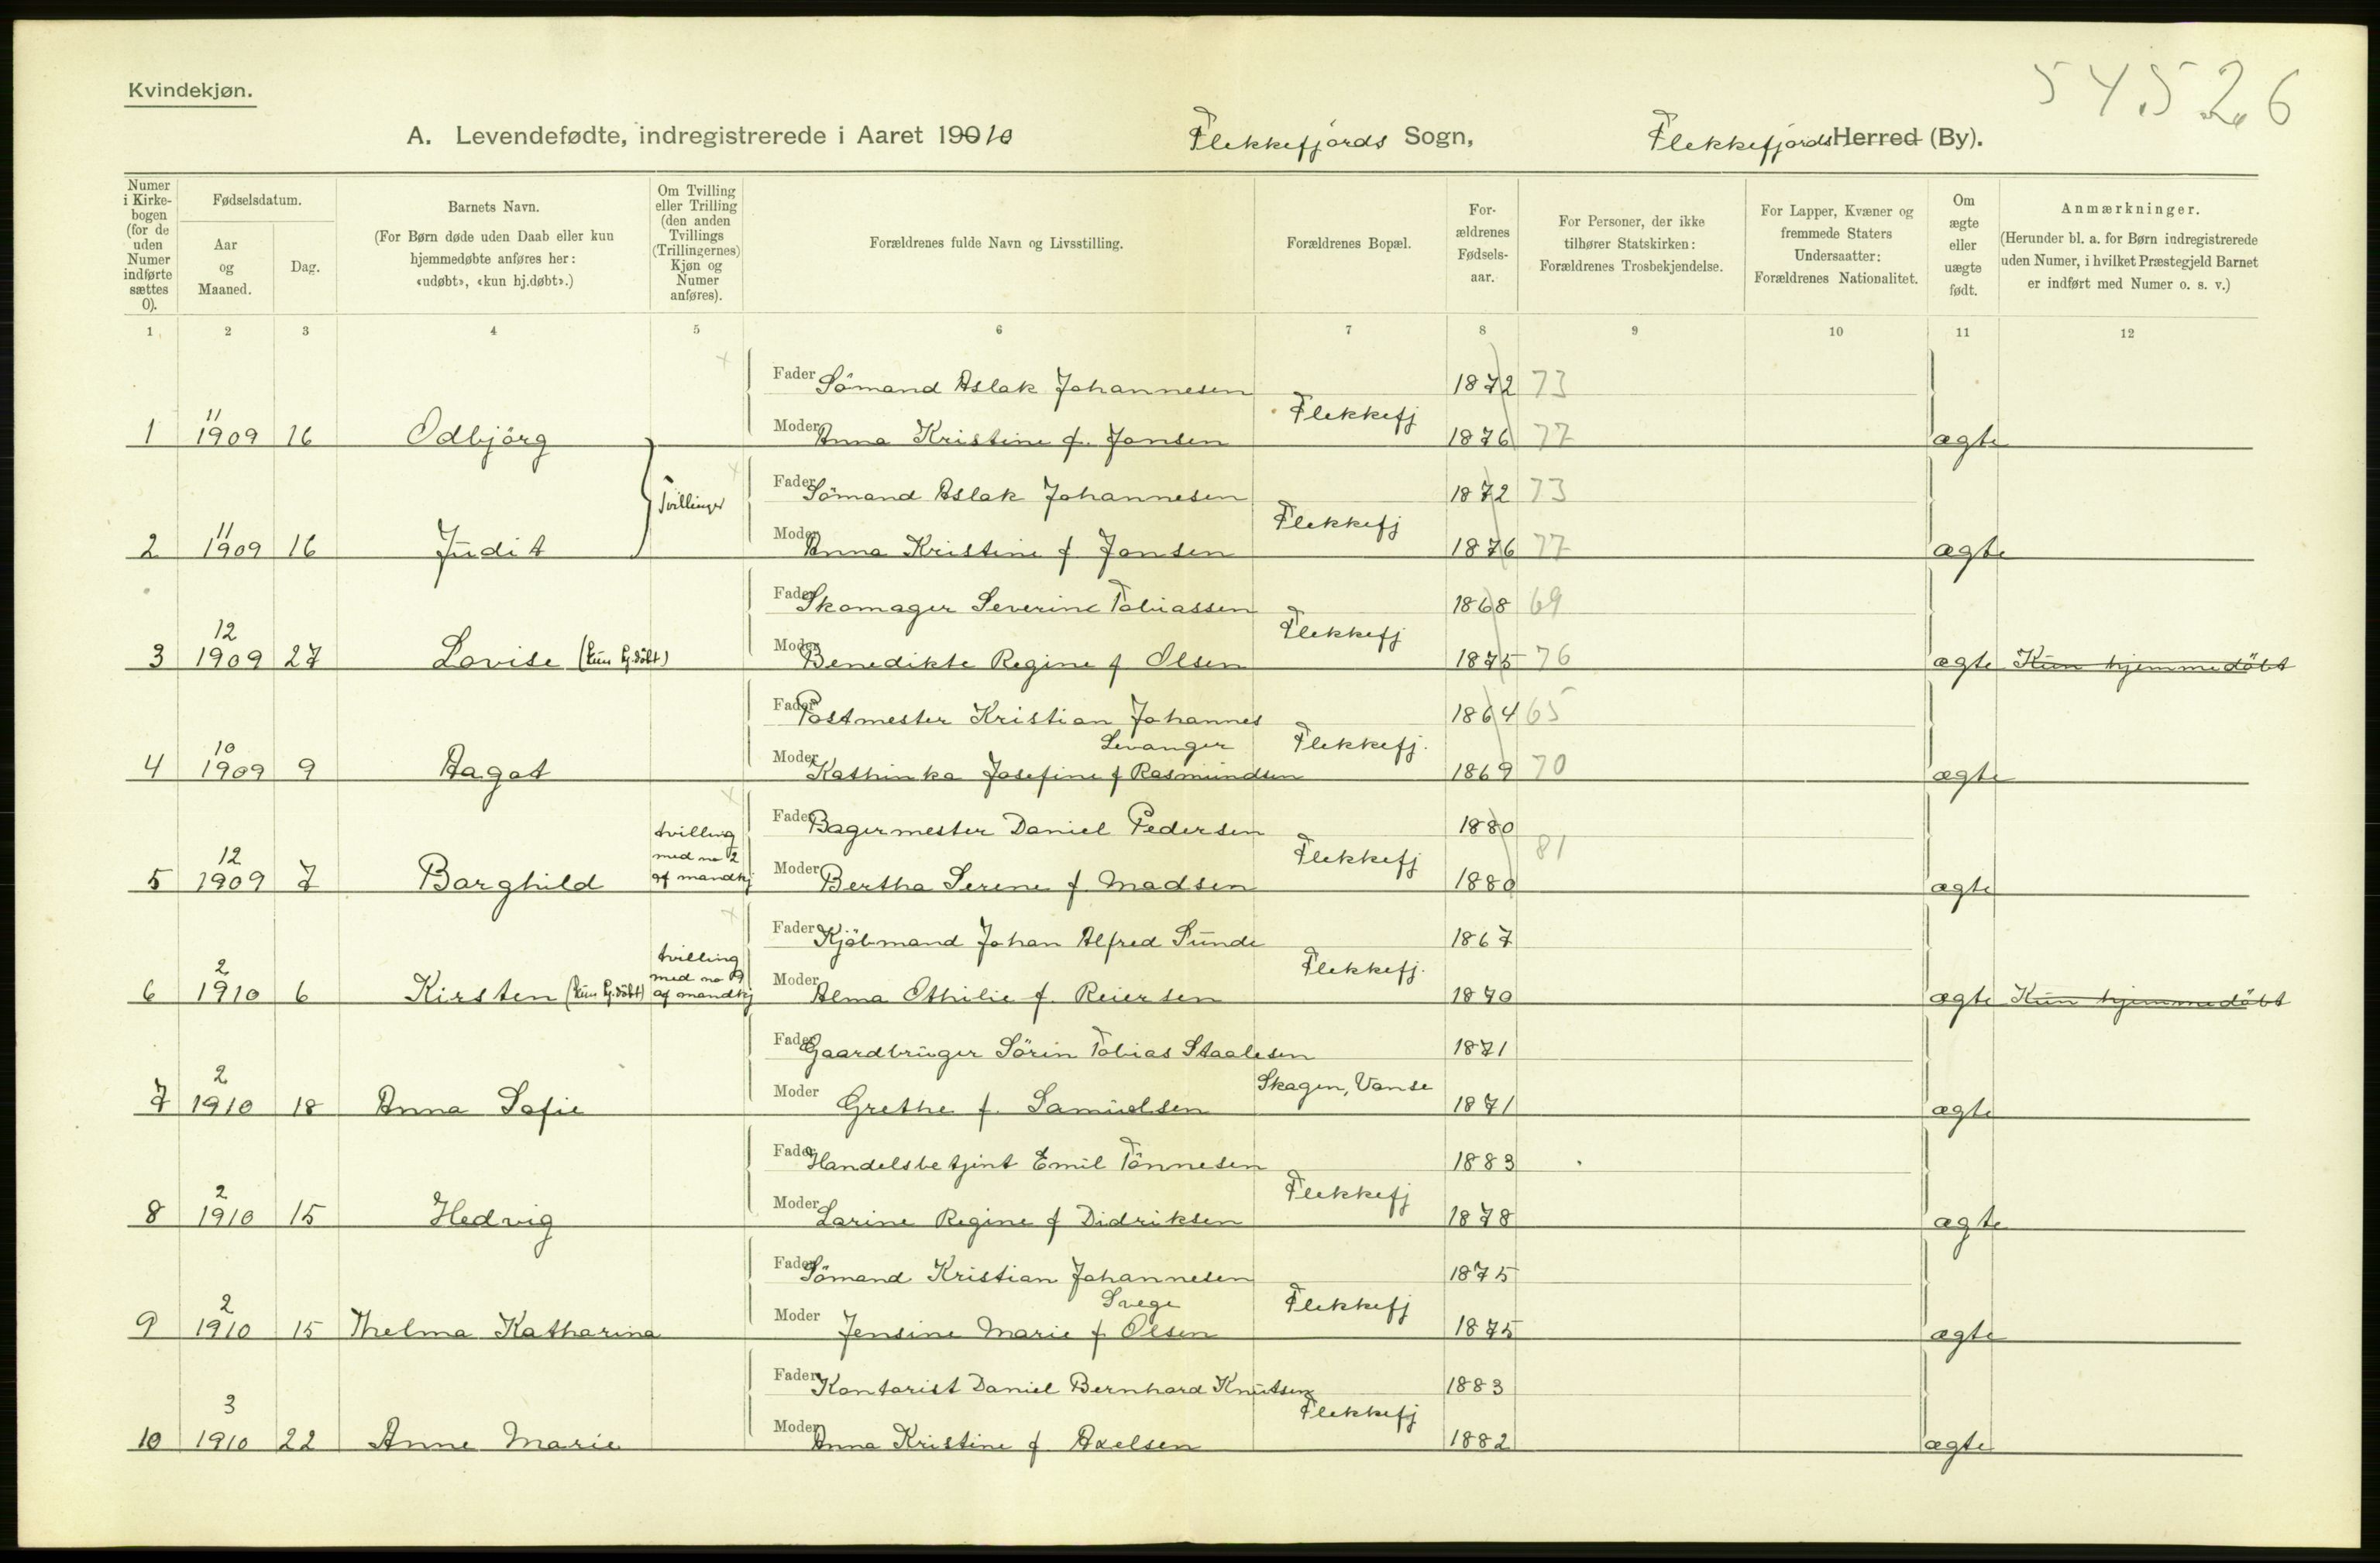 Kvindekjøn.
54.52.6
A. Levendefødte, indregistrerede i Aaret 19010 Flekkefjords Sogn, Flekkefjords Herred (By).
Numer i Kirke-bogen (for de uden Numer indførte sættes 0).
Fødselsdatum.
Aar og Maaned.
Dag.
Barnets Navn.
(For Børn døde uden Daab eller kun hjemmedøbte anføres her: «udøbt», «kun hj.døbt».)
Om Tvilling eller Trilling (den anden Tvillings (Trillingernes) Kjøn og Numer anføres).
Forældrenes fulde Navn og Livsstilling.
Forældrenes Bopæl.
For-ældrenes Fødsels-aar.
For Personer, der ikke tilhører Statskirken: Forældrenes Trosbekjendelse.
For Lapper, Kvæner og fremmede Staters Undersaatter: Forældrenes Nationalitet.
Om ægte eller uægte født.
Anmærkninger.
(Herunder bl. a. for Børn indregistrerede uden Numer, i hvilket Præstegjeld Barnet er indført med Numer o. s. v.)
1 2 3 4 5 6 7 8 9 10 11 12
Fader Sömand Aslak Johannesen 1872 73
1 11 1909 16 Odbjörg Moder Anna Kristine f. Jansen Flekkefj 1876 77 ægte
Tvillinger
Fader Sömand Aslak Johannesen 1872 73
2 11 1909 16 Judit Moder Anna Kristine f Jansen Flekkefj 1876 77 ægte
Fader Skomager Severine Tobiassen 1868 69
3 12 1909 27 Lovise (kun hj.döbt) Moder Benedikte Regine f Olsen Flekkefj 1875 76 ægte Kun hjemmedöbt
Fader Postmester Kristian Johannes Levanger 1864 65
4 10 1909 9 Aagot Moder Kathinka Josefine f Rasmundsen Flekkefj. 1869 70 ægte
Fader Bagermester Daniel Pedersen 1880 81
5 12 1909 7 Borghild tvilling med no 2 af mandkj Moder Bertha Serene f Madsen Flekkefj 1880 ægte
Fader Kjöbmand Johan Alfred Sunde 1867
6 2 1910 6 Kirsten (kun hj.döbt) tvilling med no 9 af mandkj Moder Alma Othilie f. Reiersen Flekkefj. 1870 ægte Kun hjemmedöbt
Fader Gaardbruger Sörin Tobias Staalesen 1871
7 2 1910 18 Anna Sofie Moder Grethe f. Samuelsen Skagen, Vanse 1871 ægte
Fader Handelsbetjent Emil Tönnesen 1883
8 2 1910 15 Hedvig Moder Larine Regine f Didriksen Flekkefj 1878 ægte
Fader Sömand Kristian Johannesen Svege 1875
9 2 1910 15 Thelma Katharina Moder Jensine Marie f Olsen Flekkefj 1875 ægte
Fader Kontorist Daniel Bernhard Knutsen 1883
10 3 1910 22 Anne Marie Moder Anna Kristine f Axelsen Flekkefj 1882 ægte